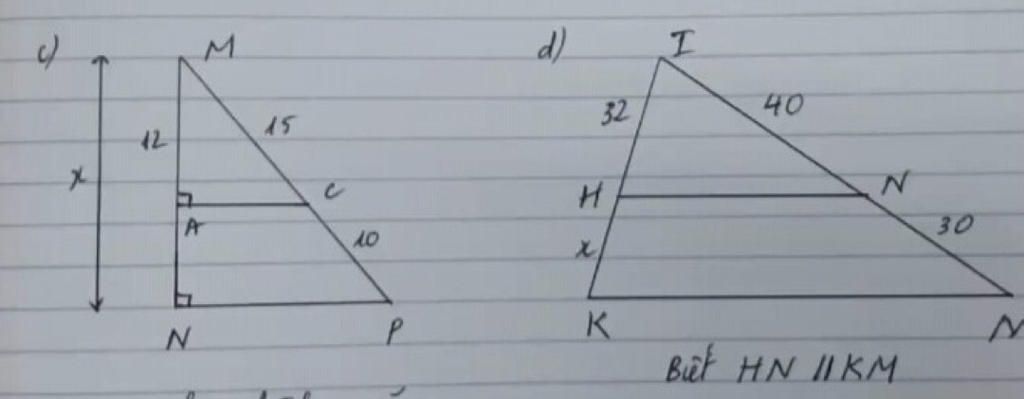 c)
M
12
15
x
A
C
10
N
P
d)
I
32
40
H
N
x
30
K
Biết HN // KM